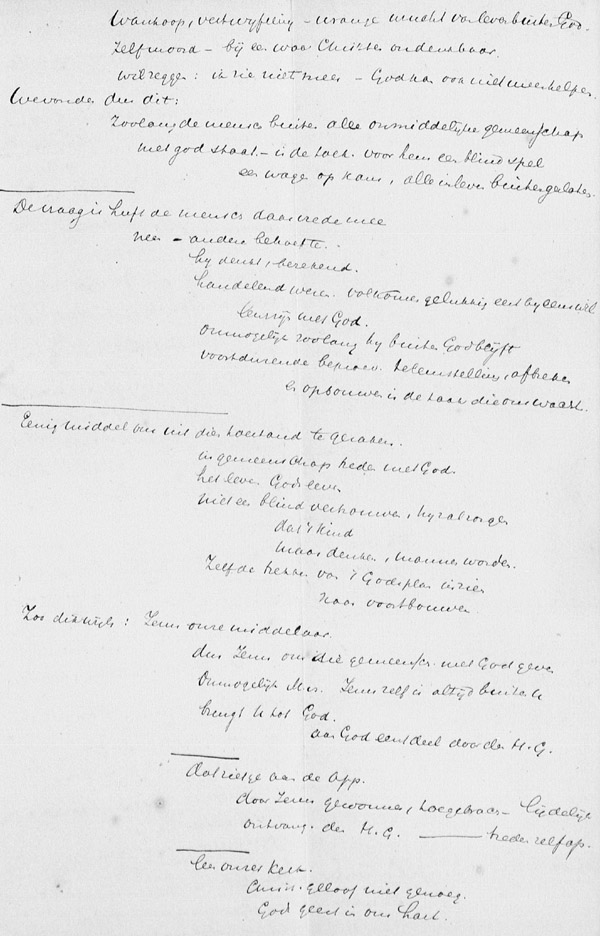 Wanhoop, vertwyfeling – vrange vrucht van leven buiten God.
Zelfmoord – bij een waar Christen ondenkbaar.
wil zeggen: ik zie niet meer – God kan ook niet meer helpen.
We vonden dus dit:
Zoolang de mensch buiten alle onmiddelijke gemeenschap
met god staat – is de toek. voor hem een blind spel
een wagen op kans, alle in leven buiten gelaten.
De vraag is heeft de mensch daar vrede mee
neen – andere behoefte.
hy denkt, berekend.
handelend wezen. volkomen gelukkig eerst by eens wil
lens zijn met God.
onmogelijk zoolang hy buiten God blyft
voortdurende teleurstelling, afbreken
en opbouwen is de taak die ons wacht.
Eenig middel om uit dien toestand te geraken.
in gemeenschap treden met God
het leven Gods leven
niet een blind vertrouwen, hy zal zorgen
dat 't kind
maar denken, mannen worden.
Zelf de trekken van 't Godsplan inzien
naar voortbouwen
Zoo dikwijls: Jezus onze middelaar.
dus Jezus ons die gemeensch. met God geven
Onmogelijk M. v. Jezus zelf is altijd buiten U
brengt U tot God.
aan God eerst deel door den H. G.
dat zie je aan de App.
door Jezus gewonnen, toegebracht – lijdelijk
ontvang. den H. G. — treden zelf op.
leer onzer kerk.
Christ. geloof niet genoeg.
God geest in ons hart.